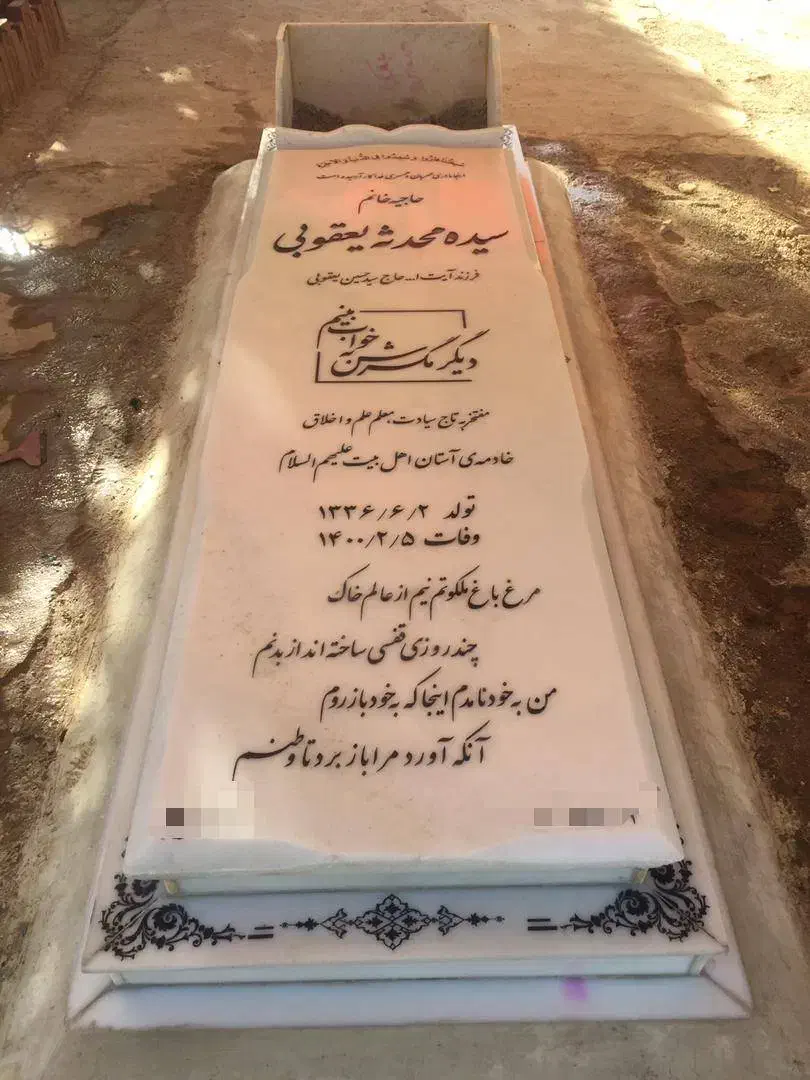 اینجا مادری مهربان و همسری فداکار آرمیده است
حاجیه خانم
سیده محدثه یعقوبی
فرزند آیت ا... حاج سید حسین یعقوبی
دیگر مگرش به خواب بینیم
مفتخر به تاج سیادت، معلم علم و اخلاق
خادمه‌ی آستان اهل بیت علیهم السلام
تولد ۱۳۳۶/۶/۲
وفات ۱۴۰۰/۲/۵
مرغ باغ ملکوتم نیم از عالم خاک
چند روزی قفسی ساخته اند از بدنم
من به خود نامدم اینجا که به خود باز روم
آنکه آورد مرا باز برد تا وطنم